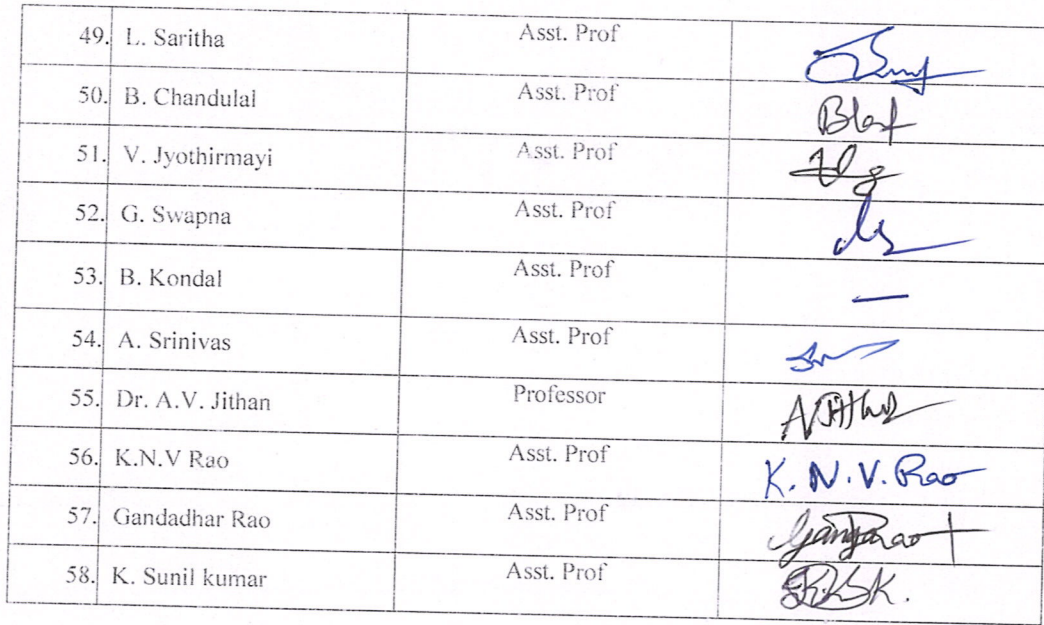 49. L. Saritha Asst. Prof
50. B. Chandulal Asst. Prof
51. V. Jyothirmayi Asst. Prof
52. G. Swapna Asst. Prof
53. B. Kondal Asst. Prof —
54. A. Srinivas Asst. Prof
55. Dr. A.V. Jithan Professor
56. K.N.V Rao Asst. Prof K. N. V. Rao
57. Gandadhar Rao Asst. Prof
58. K. Sunil kumar Asst. Prof